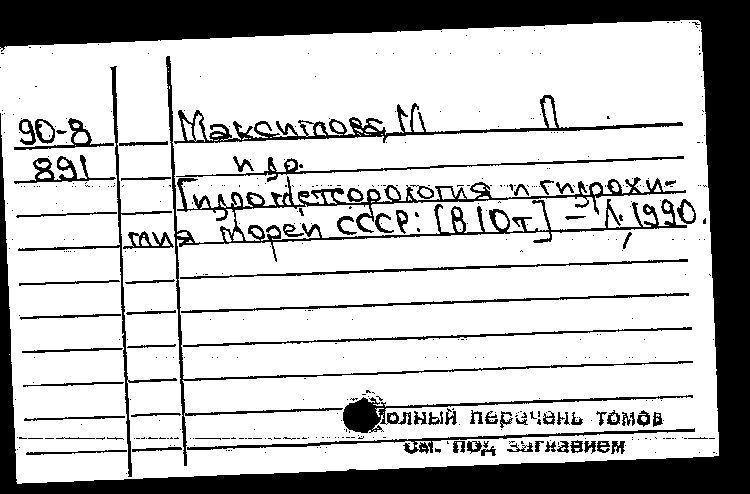 90-8 Максимова, М П.
891 и др.
Гидрометеорология и гидрохи-
мия морей СССР: [В 10т.] – Л., 1990.
Полный перечень томов
см. под заглавием